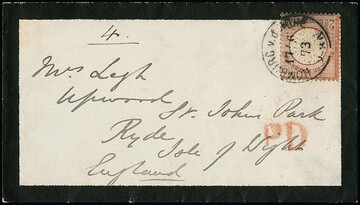 4.
Mrs Leigh
Upwood
St. Johns Park
Ryde
Isle of Wight
England
PD
HOMBURG v.d.
17 6
73